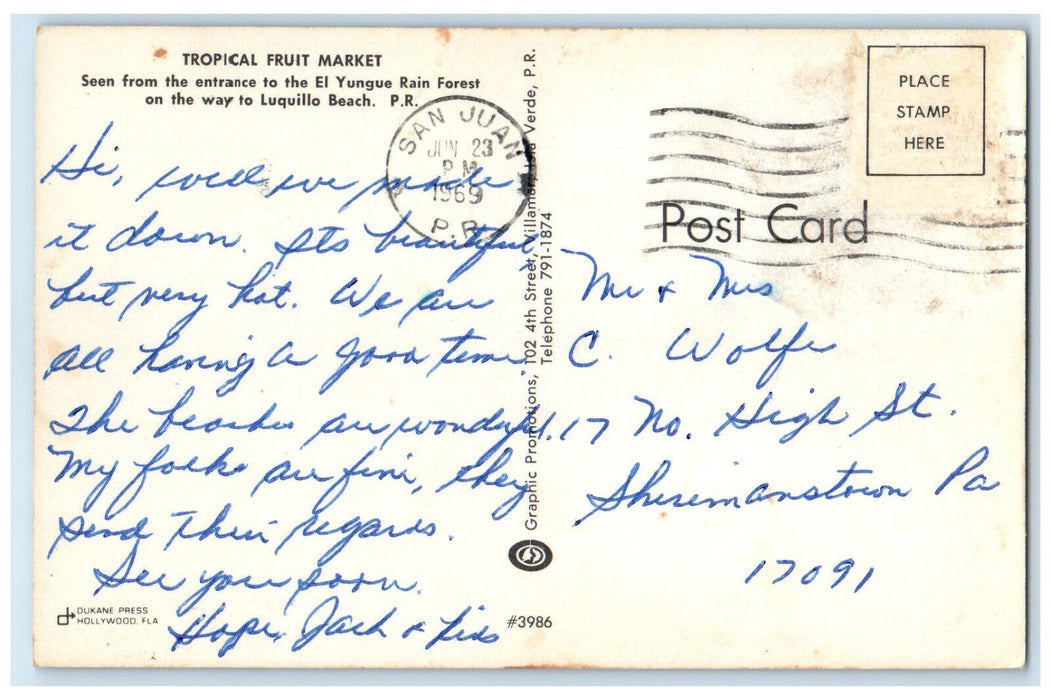 TROPICAL FRUIT MARKET
Seen from the entrance to the El Yungue Rain Forest
on the way to Luquillo Beach. P.R.
SAN JUAN
JUN 23
P M
1969
P.R.
Hi, well we made
it down. Its beautiful
but very hot. We are
all having a good time.
The beaches are wonderful.
My folks are fine, they
send their regards.
See you soon.
Hope, Jack & kids
DUKANE PRESS
HOLLYWOOD, FLA
#3986
Graphic Promotions, 102 4th Street, Villamar, Isla Verde, P.R.
Telephone 791-1874
PLACE
STAMP
HERE
Post Card
Mr & Mrs
C. Wolfe
17 No. High St.
Shiremanstown Pa
17091